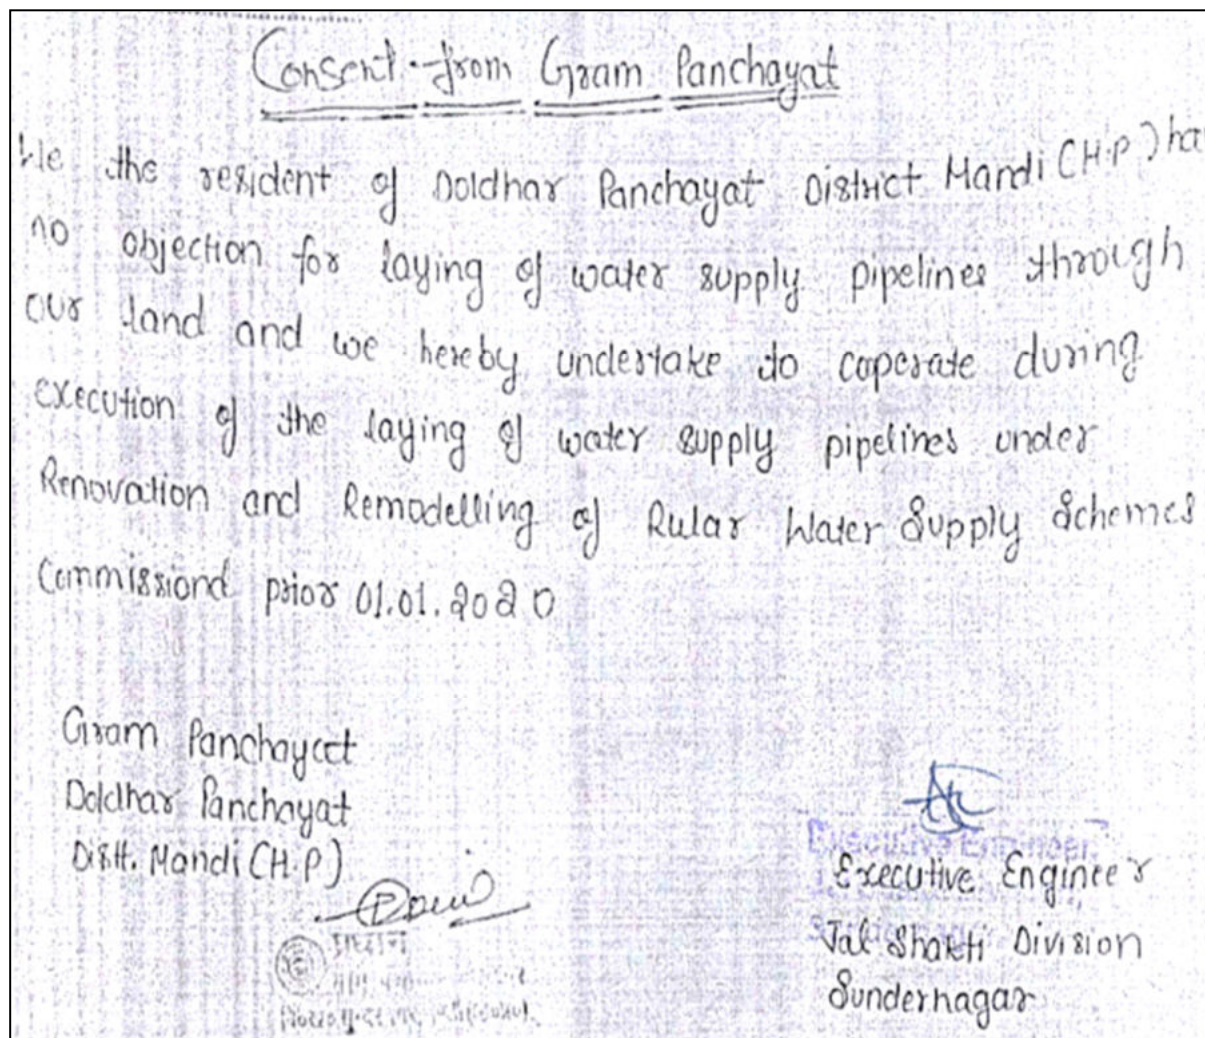 Consent from Gram Panchayat
We the resident of Doldhar Panchayat District Mandi (H.P) ha
no objection for laying of water supply pipelines through
our land and we hereby undertake to coperate during
execution of the laying of water supply pipelines under
Renovation and Remodelling of Rular Water Supply Schemes
Commissiond prior 01.01.2020
Gram Panchayat
Doldhar Panchayat
Distt. Mandi (H.P)
Executive Engineer
Executive Engineer
Jal Shakti Division
Sundernagar